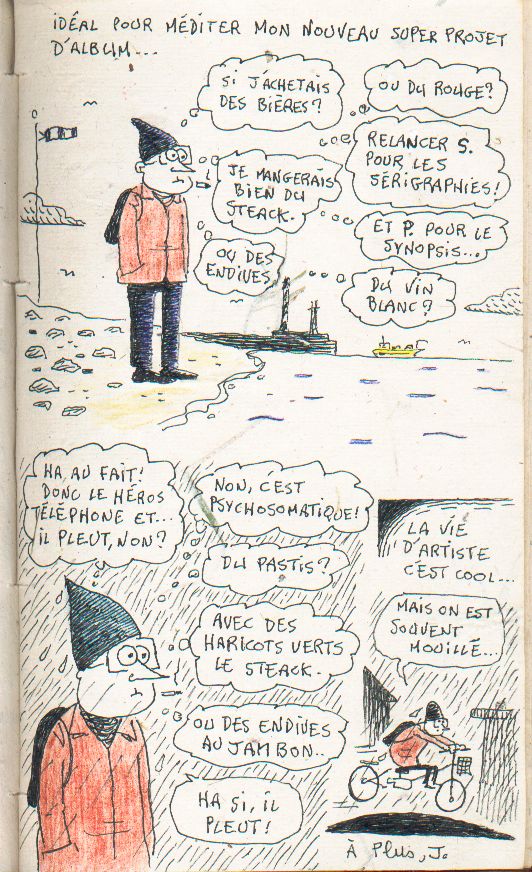 IDÉAL POUR MÉDITER MON NOUVEAU SUPER PROJET
D'ALBUM...
SI J'ACHETAIS
DES BIÈRES?
OU DU ROUGE?
RELANCER S.
POUR LES
SÉRIGRAPHIES!
JE MANGERAIS
BIEN DU
STEACK.
ET P. POUR LE
SYNOPSIS...
OU DES
ENDIVES
DU VIN
BLANC?
HA, AU FAIT!
DONC LE HÉROS
TÉLÉPHONE ET...
IL PLEUT, NON?
NON, C'EST
PSYCHOSOMATIQUE!
DU PASTIS?
AVEC DES
HARICOTS VERTS
LE STEACK.
OU DES ENDIVES
AU JAMBON..
HA SI, IL
PLEUT!
LA VIE
D'ARTISTE
C'EST COOL...
MAIS ON EST
SOUVENT
MOUILLÉ...
À Plus, J.